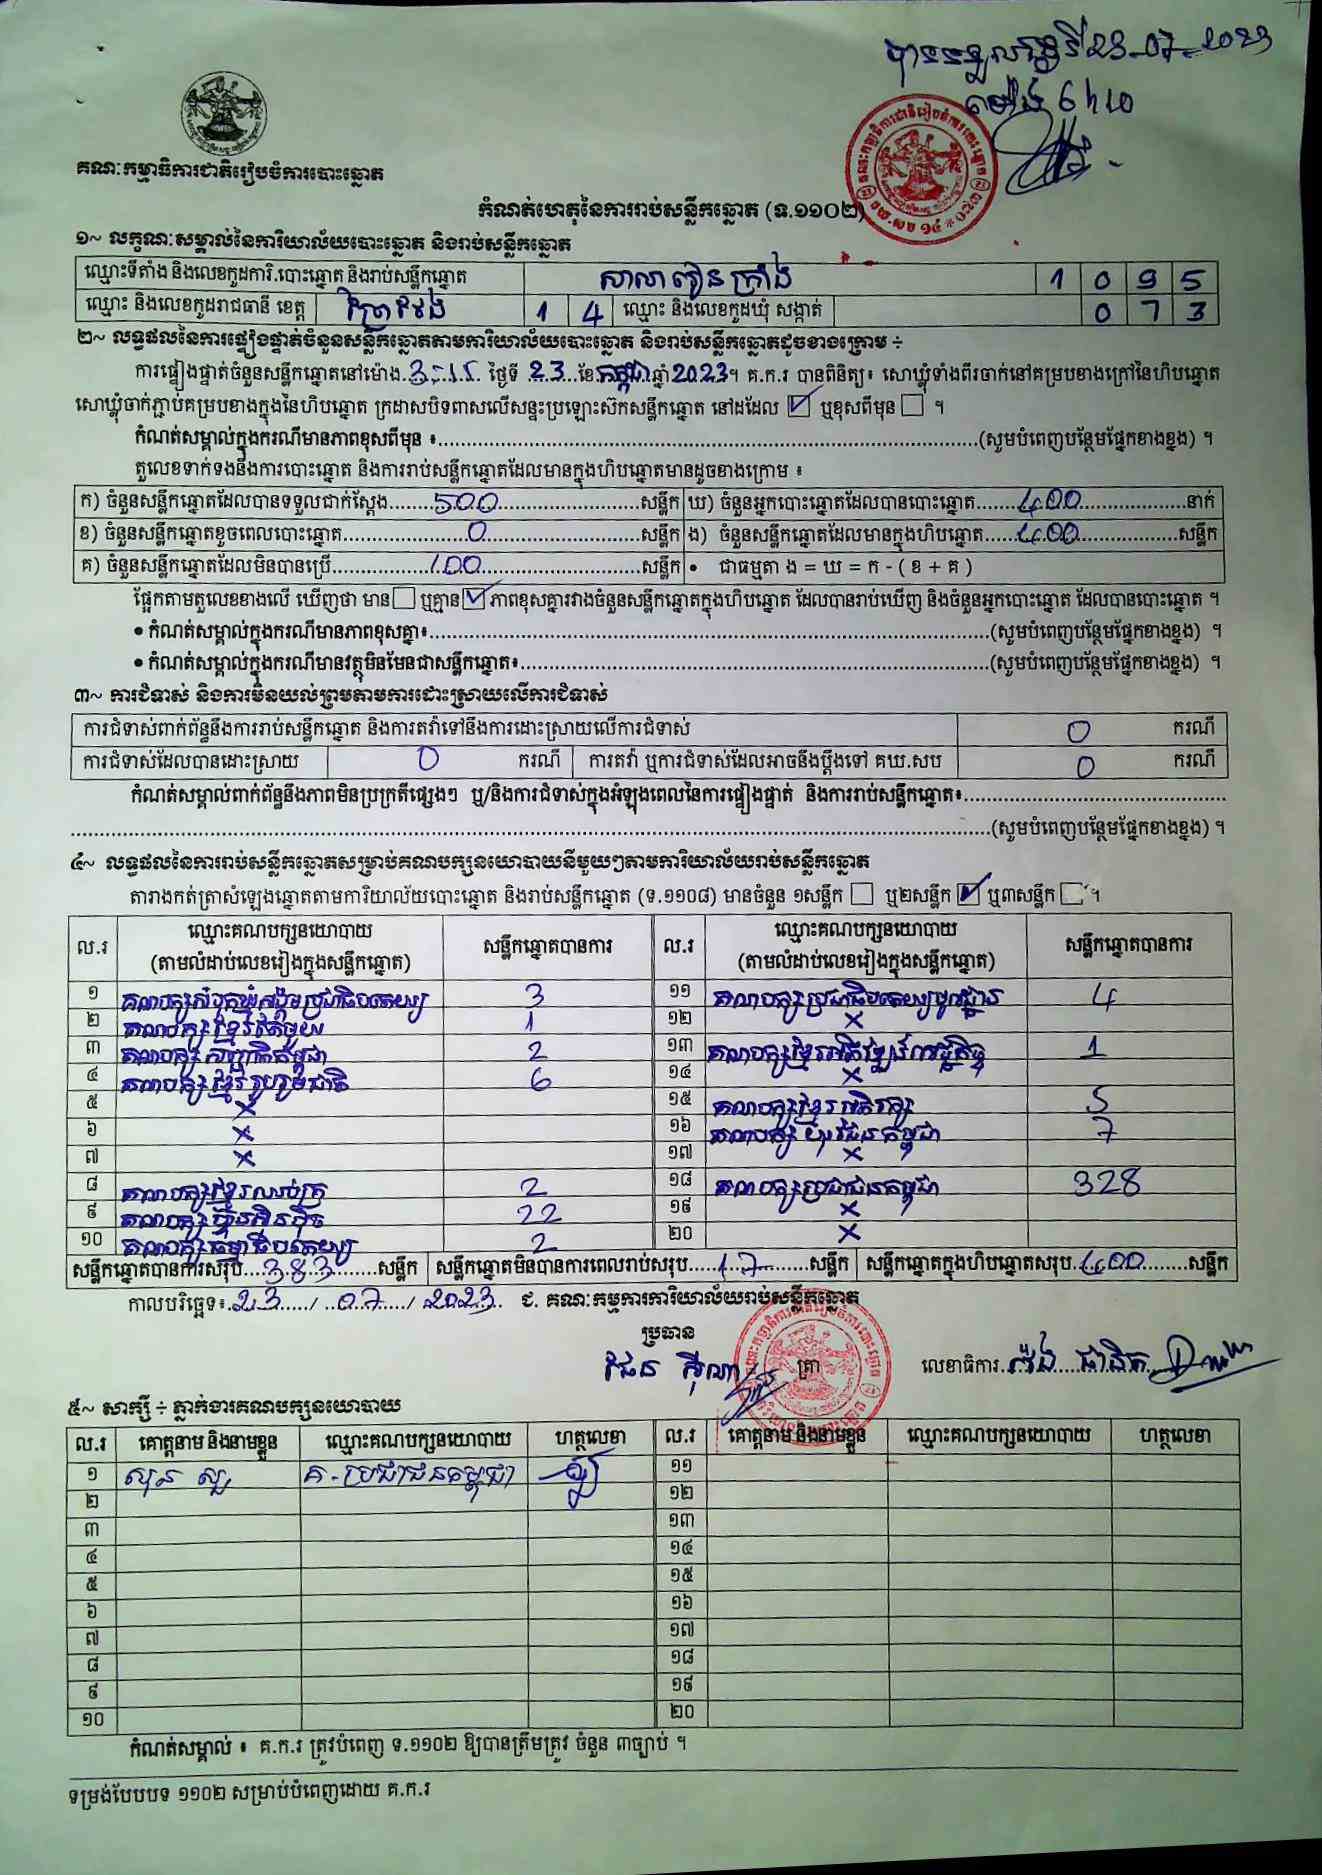 បានទទួលថ្ងៃទី 23-07-2023
ម៉ោង 6h10
គណៈកម្មាធិការជាតិរៀបចំការបោះឆ្នោត
កំណត់ហេតុនៃការរាប់សន្លឹកឆ្នោត (ទ.១១០២)
១~ លក្ខណៈសម្គាល់នៃការិយាល័យបោះឆ្នោត និងរាប់សន្លឹកឆ្នោត
ឈ្មោះទីតាំង និងលេខកូដការិ.បោះឆ្នោត និងរាប់សន្លឹកឆ្នោត សាលា 1 0 9 5
ឈ្មោះ និងលេខកូដរាជធានី ខេត្ត ព្រៃវែង 1 4 ឈ្មោះ និងលេខកូដឃុំ សង្កាត់ 0 7 3
២~ លទ្ធផលនៃការផ្ទៀងផ្ទាត់ចំនួនសន្លឹកឆ្នោតតាមការិយាល័យបោះឆ្នោត និងរាប់សន្លឹកឆ្នោតដូចខាងក្រោម ÷
ការផ្ទៀងផ្ទាត់ចំនួនសន្លឹកឆ្នោតនៅម៉ោង 3:15 ថ្ងៃទី 23 ខែ កក្កដា ឆ្នាំ 2023។ គ.ក.រ បានពិនិត្យ៖ សោឃ្លុំទាំងពីរចាក់នៅគម្របខាងក្រៅនៃហិបឆ្នោត
សោឃ្លុំចាក់ភ្ជាប់គម្របខាងក្នុងនៃហិបឆ្នោត ក្រដាសបិទពាសលើសន្ទះប្រឡោះស៊កសន្លឹកឆ្នោត នៅដដែល ☑ ឬខុសពីមុន ☐ ។
កំណត់សម្គាល់ក្នុងករណីមានភាពខុសពីមុន ៖..........(សូមបំពេញបន្ថែមផ្នែកខាងខ្នង) ។
តួលេខទាក់ទងនឹងការបោះឆ្នោត និងការរាប់សន្លឹកឆ្នោតដែលមានក្នុងហិបឆ្នោតមានដូចខាងក្រោម ៖
ក) ចំនួនសន្លឹកឆ្នោតដែលបានទទួលជាក់ស្តែង 500 សន្លឹក ឃ) ចំនួនអ្នកបោះឆ្នោតដែលបានបោះឆ្នោត 400 នាក់
ខ) ចំនួនសន្លឹកឆ្នោតខូចពេលបោះឆ្នោត 0 សន្លឹក ង) ចំនួនសន្លឹកឆ្នោតដែលមានក្នុងហិបឆ្នោត 400 សន្លឹក
គ) ចំនួនសន្លឹកឆ្នោតដែលមិនបានប្រើ 100 សន្លឹក • ជាធម្មតា ង = ឃ = ក - ( ខ + គ )
ផ្អែកតាមតួលេខខាងលើ ឃើញថា មាន ☐ ឬគ្មាន ☑ ភាពខុសគ្នារវាងចំនួនសន្លឹកឆ្នោតក្នុងហិបឆ្នោត ដែលបានរាប់ឃើញ និងចំនួនអ្នកបោះឆ្នោត ដែលបានបោះឆ្នោត ។
• កំណត់សម្គាល់ក្នុងករណីមានភាពខុសគ្នា៖..........(សូមបំពេញបន្ថែមផ្នែកខាងខ្នង) ។
• កំណត់សម្គាល់ក្នុងករណីមានវត្ថុមិនមែនជាសន្លឹកឆ្នោត៖..........(សូមបំពេញបន្ថែមផ្នែកខាងខ្នង) ។
៣~ ការជំទាស់ និងការមិនយល់ព្រមតាមការដោះស្រាយលើការជំទាស់
ការជំទាស់ពាក់ព័ន្ធនឹងការរាប់សន្លឹកឆ្នោត និងការតវ៉ាទៅនឹងការដោះស្រាយលើការជំទាស់ 0 ករណី
ការជំទាស់ដែលបានដោះស្រាយ 0 ករណី ការតវ៉ា ឬការជំទាស់ដែលអាចនឹងប្តឹងទៅ គឃ.សប 0 ករណី
កំណត់សម្គាល់ពាក់ព័ន្ធនឹងភាពមិនប្រក្រតីផ្សេងៗ ឬ/និងការជំទាស់ក្នុងអំឡុងពេលនៃការផ្ទៀងផ្ទាត់ និងការរាប់សន្លឹកឆ្នោត៖..........
..........(សូមបំពេញបន្ថែមផ្នែកខាងខ្នង) ។
៤~ លទ្ធផលនៃការរាប់សន្លឹកឆ្នោតសម្រាប់គណបក្សនយោបាយនីមួយៗតាមការិយាល័យរាប់សន្លឹកឆ្នោត
តារាងកត់ត្រាសំឡេងឆ្នោតតាមការិយាល័យបោះឆ្នោត និងរាប់សន្លឹកឆ្នោត (ទ.១១០៨) មានចំនួន ១សន្លឹក ☐ ឬ២សន្លឹក ☑ ឬ៣សន្លឹក ☐ ។
ល.រ ឈ្មោះគណបក្សនយោបាយ សន្លឹកឆ្នោតបានការ ល.រ ឈ្មោះគណបក្សនយោបាយ សន្លឹកឆ្នោតបានការ
(តាមលំដាប់លេខរៀងក្នុងសន្លឹកឆ្នោត) (តាមលំដាប់លេខរៀងក្នុងសន្លឹកឆ្នោត)
១ គណបក្សសំបុកឃ្មុំសង្គមប្រជាធិបតេយ្យ 3 ១១ គណបក្សប្រជាធិបតេយ្យមូលដ្ឋាន 4
២ គណបក្សខ្មែរតែមួយ 1 ១២ ×
៣ គណបក្សសញ្ជាតិកម្ពុជា 2 ១៣ គណបក្សខ្មែរអភិវឌ្ឍន៍សេដ្ឋកិច្ច 1
៤ គណបក្សខ្មែររួបរួមជាតិ 6 ១៤ ×
៥ × ១៥ គណបក្សខ្មែរអភិរក្ស 5
៦ × ១៦ គណបក្សយុវជនកម្ពុជា 7
៧ × ១៧ ×
៨ គណបក្សខ្មែរឈប់ក្រ 2 ១៨ គណបក្សប្រជាជនកម្ពុជា 328
៩ គណបក្សហ្វ៊ុនស៊ិនប៉ិច 22 ១៩ ×
១០ គណបក្សធម្មាធិបតេយ្យ 2 ២០ ×
សន្លឹកឆ្នោតបានការសរុប 383 សន្លឹក សន្លឹកឆ្នោតមិនបានការពេលរាប់សរុប 17 សន្លឹក សន្លឹកឆ្នោតក្នុងហិបឆ្នោតសរុប 400 សន្លឹក
កាលបរិច្ឆេទ៖ 23 / 07 / 2023 ជ. គណៈកម្មការការិយាល័យរាប់សន្លឹកឆ្នោត
ប្រធាន
ត្រា លេខាធិការ
៥~ សាក្សី ÷ ភ្នាក់ងារគណបក្សនយោបាយ
ល.រ គោត្តនាម និងនាមខ្លួន ឈ្មោះគណបក្សនយោបាយ ហត្ថលេខា ល.រ គោត្តនាម និងនាមខ្លួន ឈ្មោះគណបក្សនយោបាយ ហត្ថលេខា
១ គ-ប្រជាជនកម្ពុជា ១១
២ ១២
៣ ១៣
៤ ១៤
៥ ១៥
៦ ១៦
៧ ១៧
៨ ១៨
៩ ១៩
១០ ២០
កំណត់សម្គាល់ ៖ គ.ក.រ ត្រូវបំពេញ ទ.១១០២ ឱ្យបានត្រឹមត្រូវ ចំនួន ៣ច្បាប់ ។
ទម្រង់បែបបទ ១១០២ សម្រាប់បំពេញដោយ គ.ក.រ